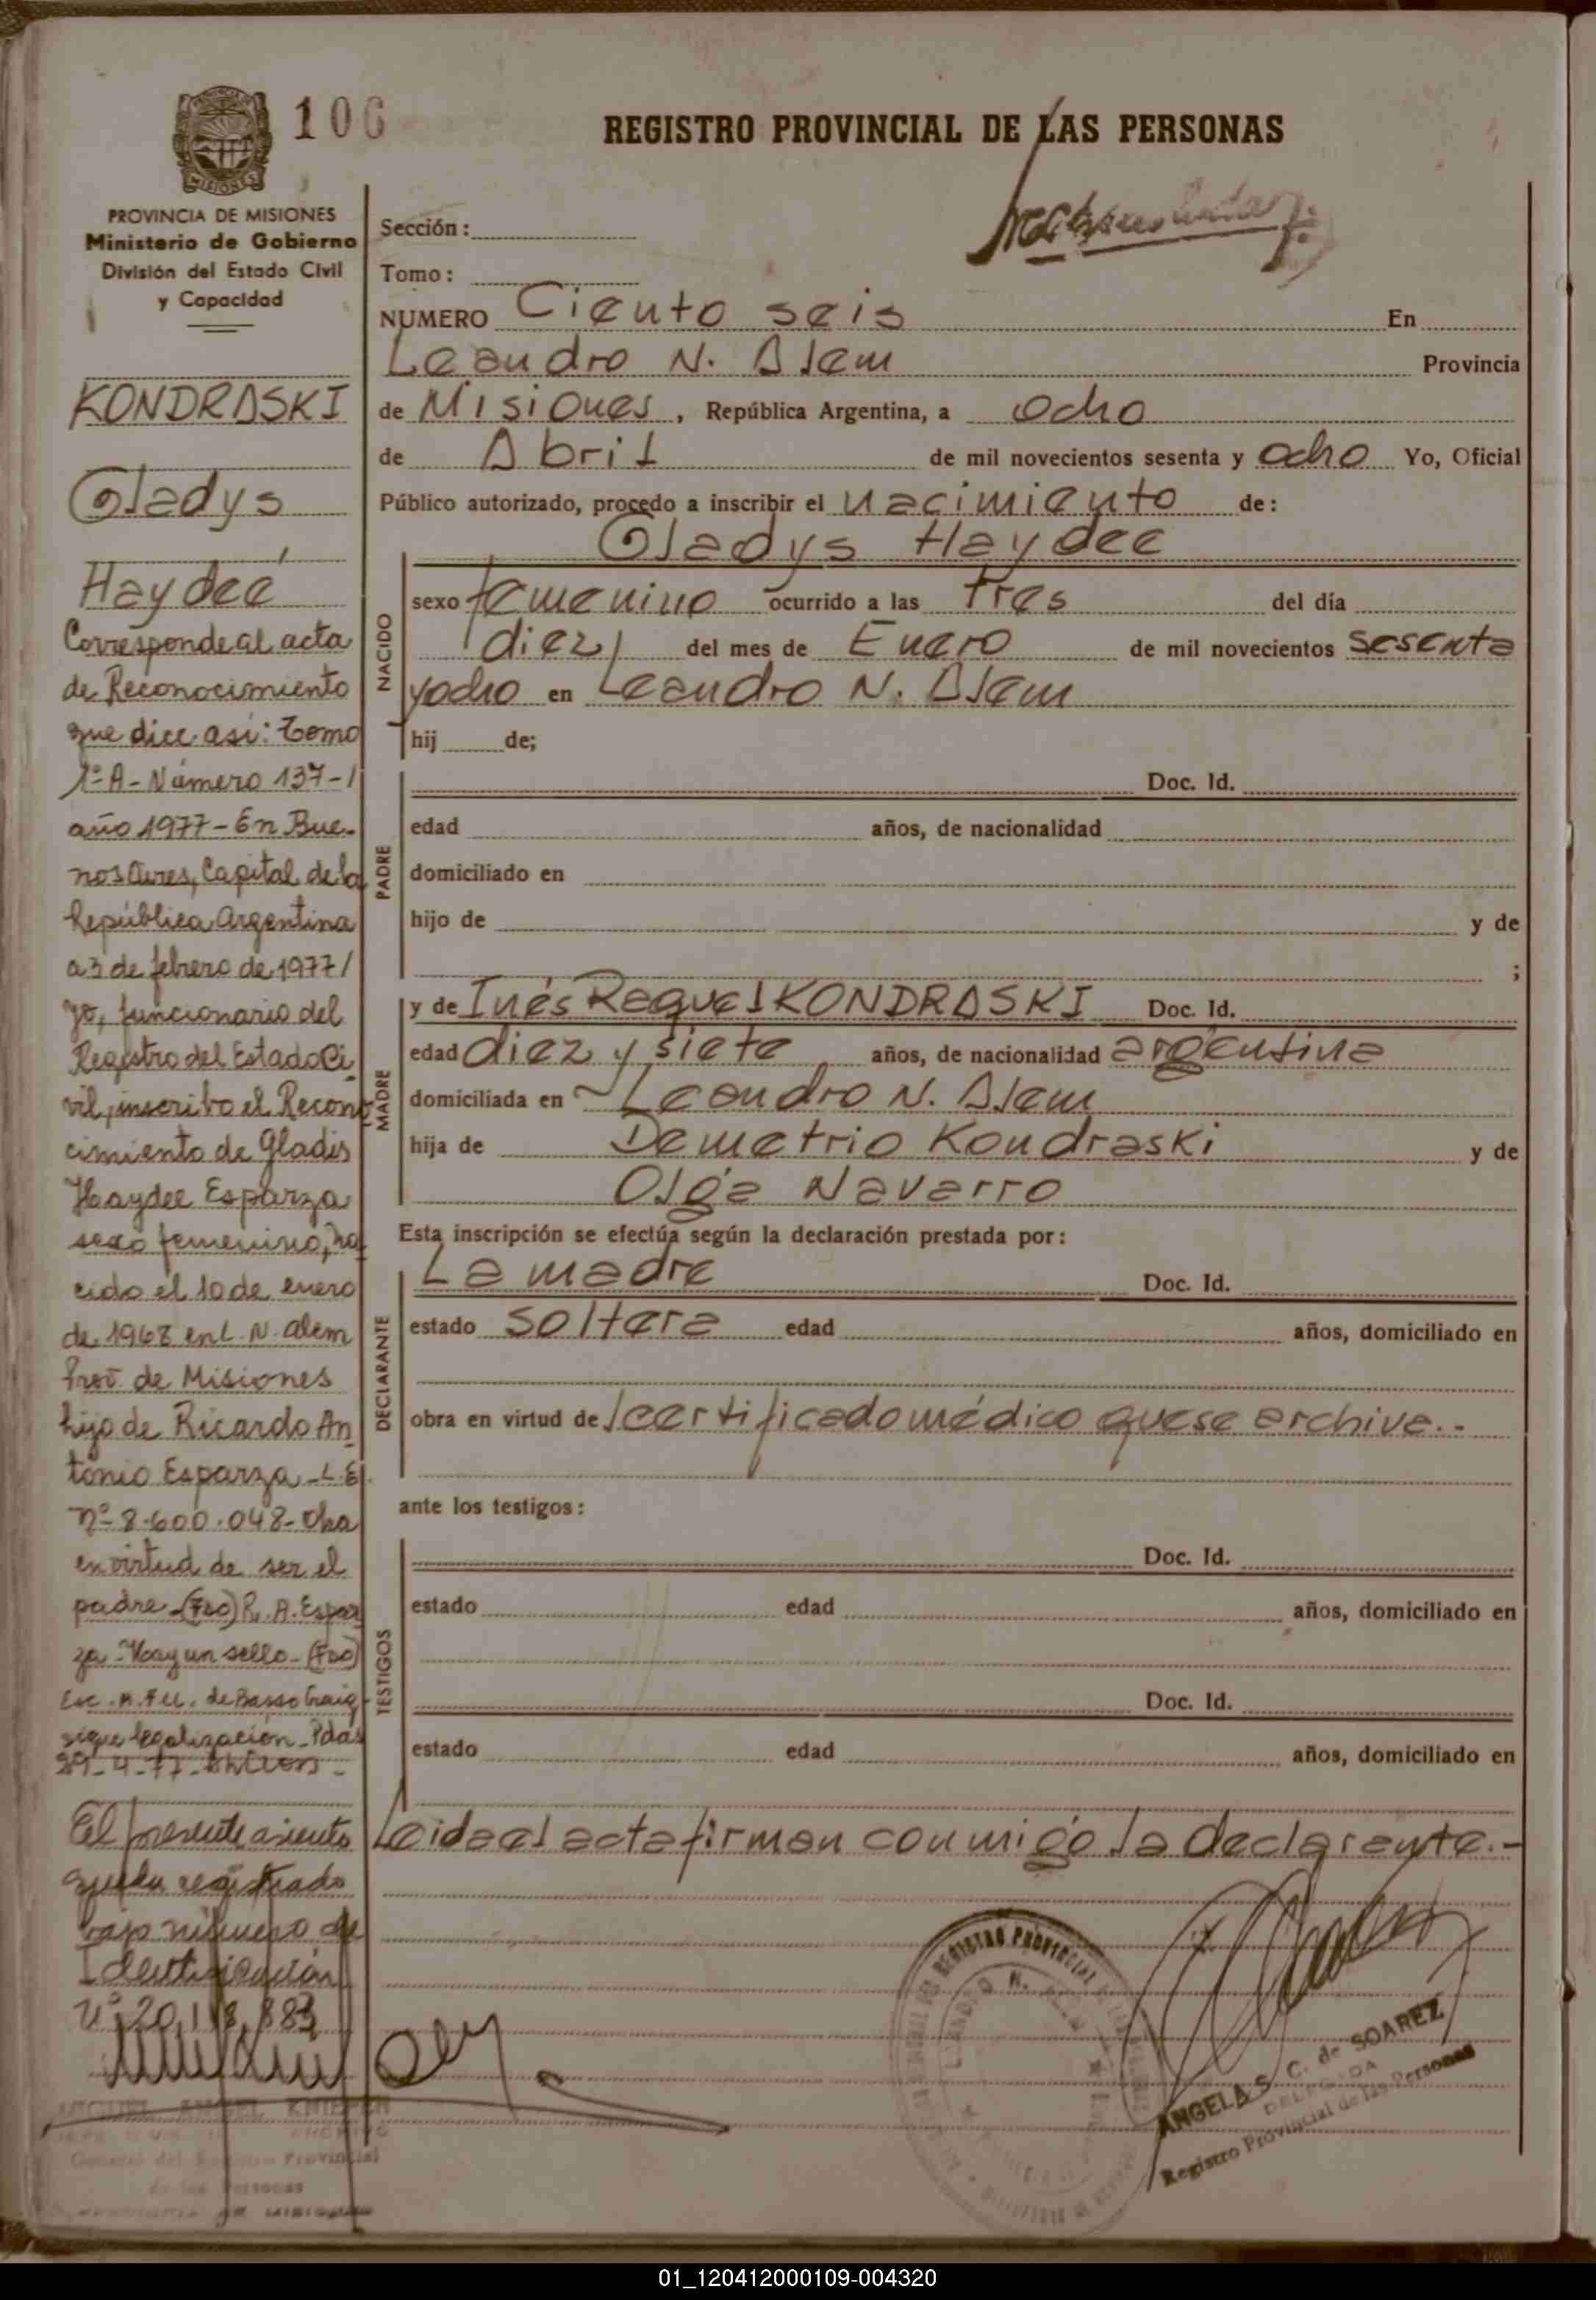 106
REGISTRO PROVINCIAL DE LAS PERSONAS
PROVINCIA DE MISIONES
Ministerio de Gobierno
División del Estado Civil
y Capacidad
KONDRASKI
Gladys
Haydeé
Corresponde al acta
de Reconocimiento
que dice asi: Tomo
1º A - Número 137 -
año 1977 - En Bue-
nos Aires, Capital de la
República Argentina
a 3 de febrero de 1977/
yo, funcionario del
Registro del Estado Ci
vil, inscribo el Recono
cimiento de Gladis
Haydee Esparza
sexo femenino, na
cido el 10 de enero
de 1968 en L. N. Alem
Prov. de Misiones
hijo de Ricardo An
tonio Esparza - L. E.
nº 8.600.048 - Obra
en virtud de ser el
padre - (Fdo) R. A. Espar
za - Hay un sello - (Fdo)
Esc. M. de Basso
sigue legalización - Pdas
29-4-77
El presente asiento
queda registrado
bajo número de
Identificación
Nº 20,118,883
MIGUEL ANGEL
General del Registro Provincial
de las Personas
Sección:
Tomo:
NUMERO Ciento seis En
Leandro N. Alem Provincia
de Misiones, República Argentina, a ocho
de Abril de mil novecientos sesenta y ocho Yo, Oficial
Público autorizado, procedo a inscribir el nacimiento de:
Gladys Haydee
NACIDO
sexo femenino ocurrido a las tres del día
diez/ del mes de Enero de mil novecientos sesenta
yocho en Leandro N. Alem
hij de;
PADRE
Doc. Id.
edad años, de nacionalidad
domiciliado en
hijo de y de
;
MADRE
y de Inés Raquel KONDRASKI Doc. Id.
edad diez y siete años, de nacionalidad argentina
domiciliada en Leandro N. Alem
hija de Demetrio Kondraski y de
Olga Navarro
Esta inscripción se efectúa según la declaración prestada por:
DECLARANTE
La madre Doc. Id.
estado soltera edad años, domiciliado en
obra en virtud de/certificado médico que se archiva.-
ante los testigos:
TESTIGOS
Doc. Id.
estado edad años, domiciliado en
Doc. Id.
estado edad años, domiciliado en
Leida el acta firman conmigo la declarante.-
ANGELA S. C. de SOAREZ
DELEGADA
Registro Provincial de las Personas
01_120412000109-004320